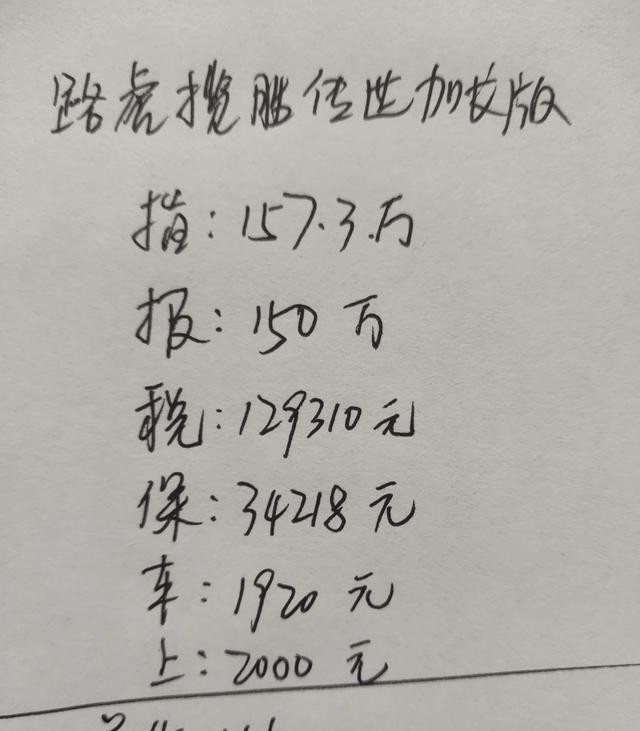 路虎揽胜传世加长版
指:157.3万
报:150万
税:129310元
保:34218元
车:1920元
上:2000元